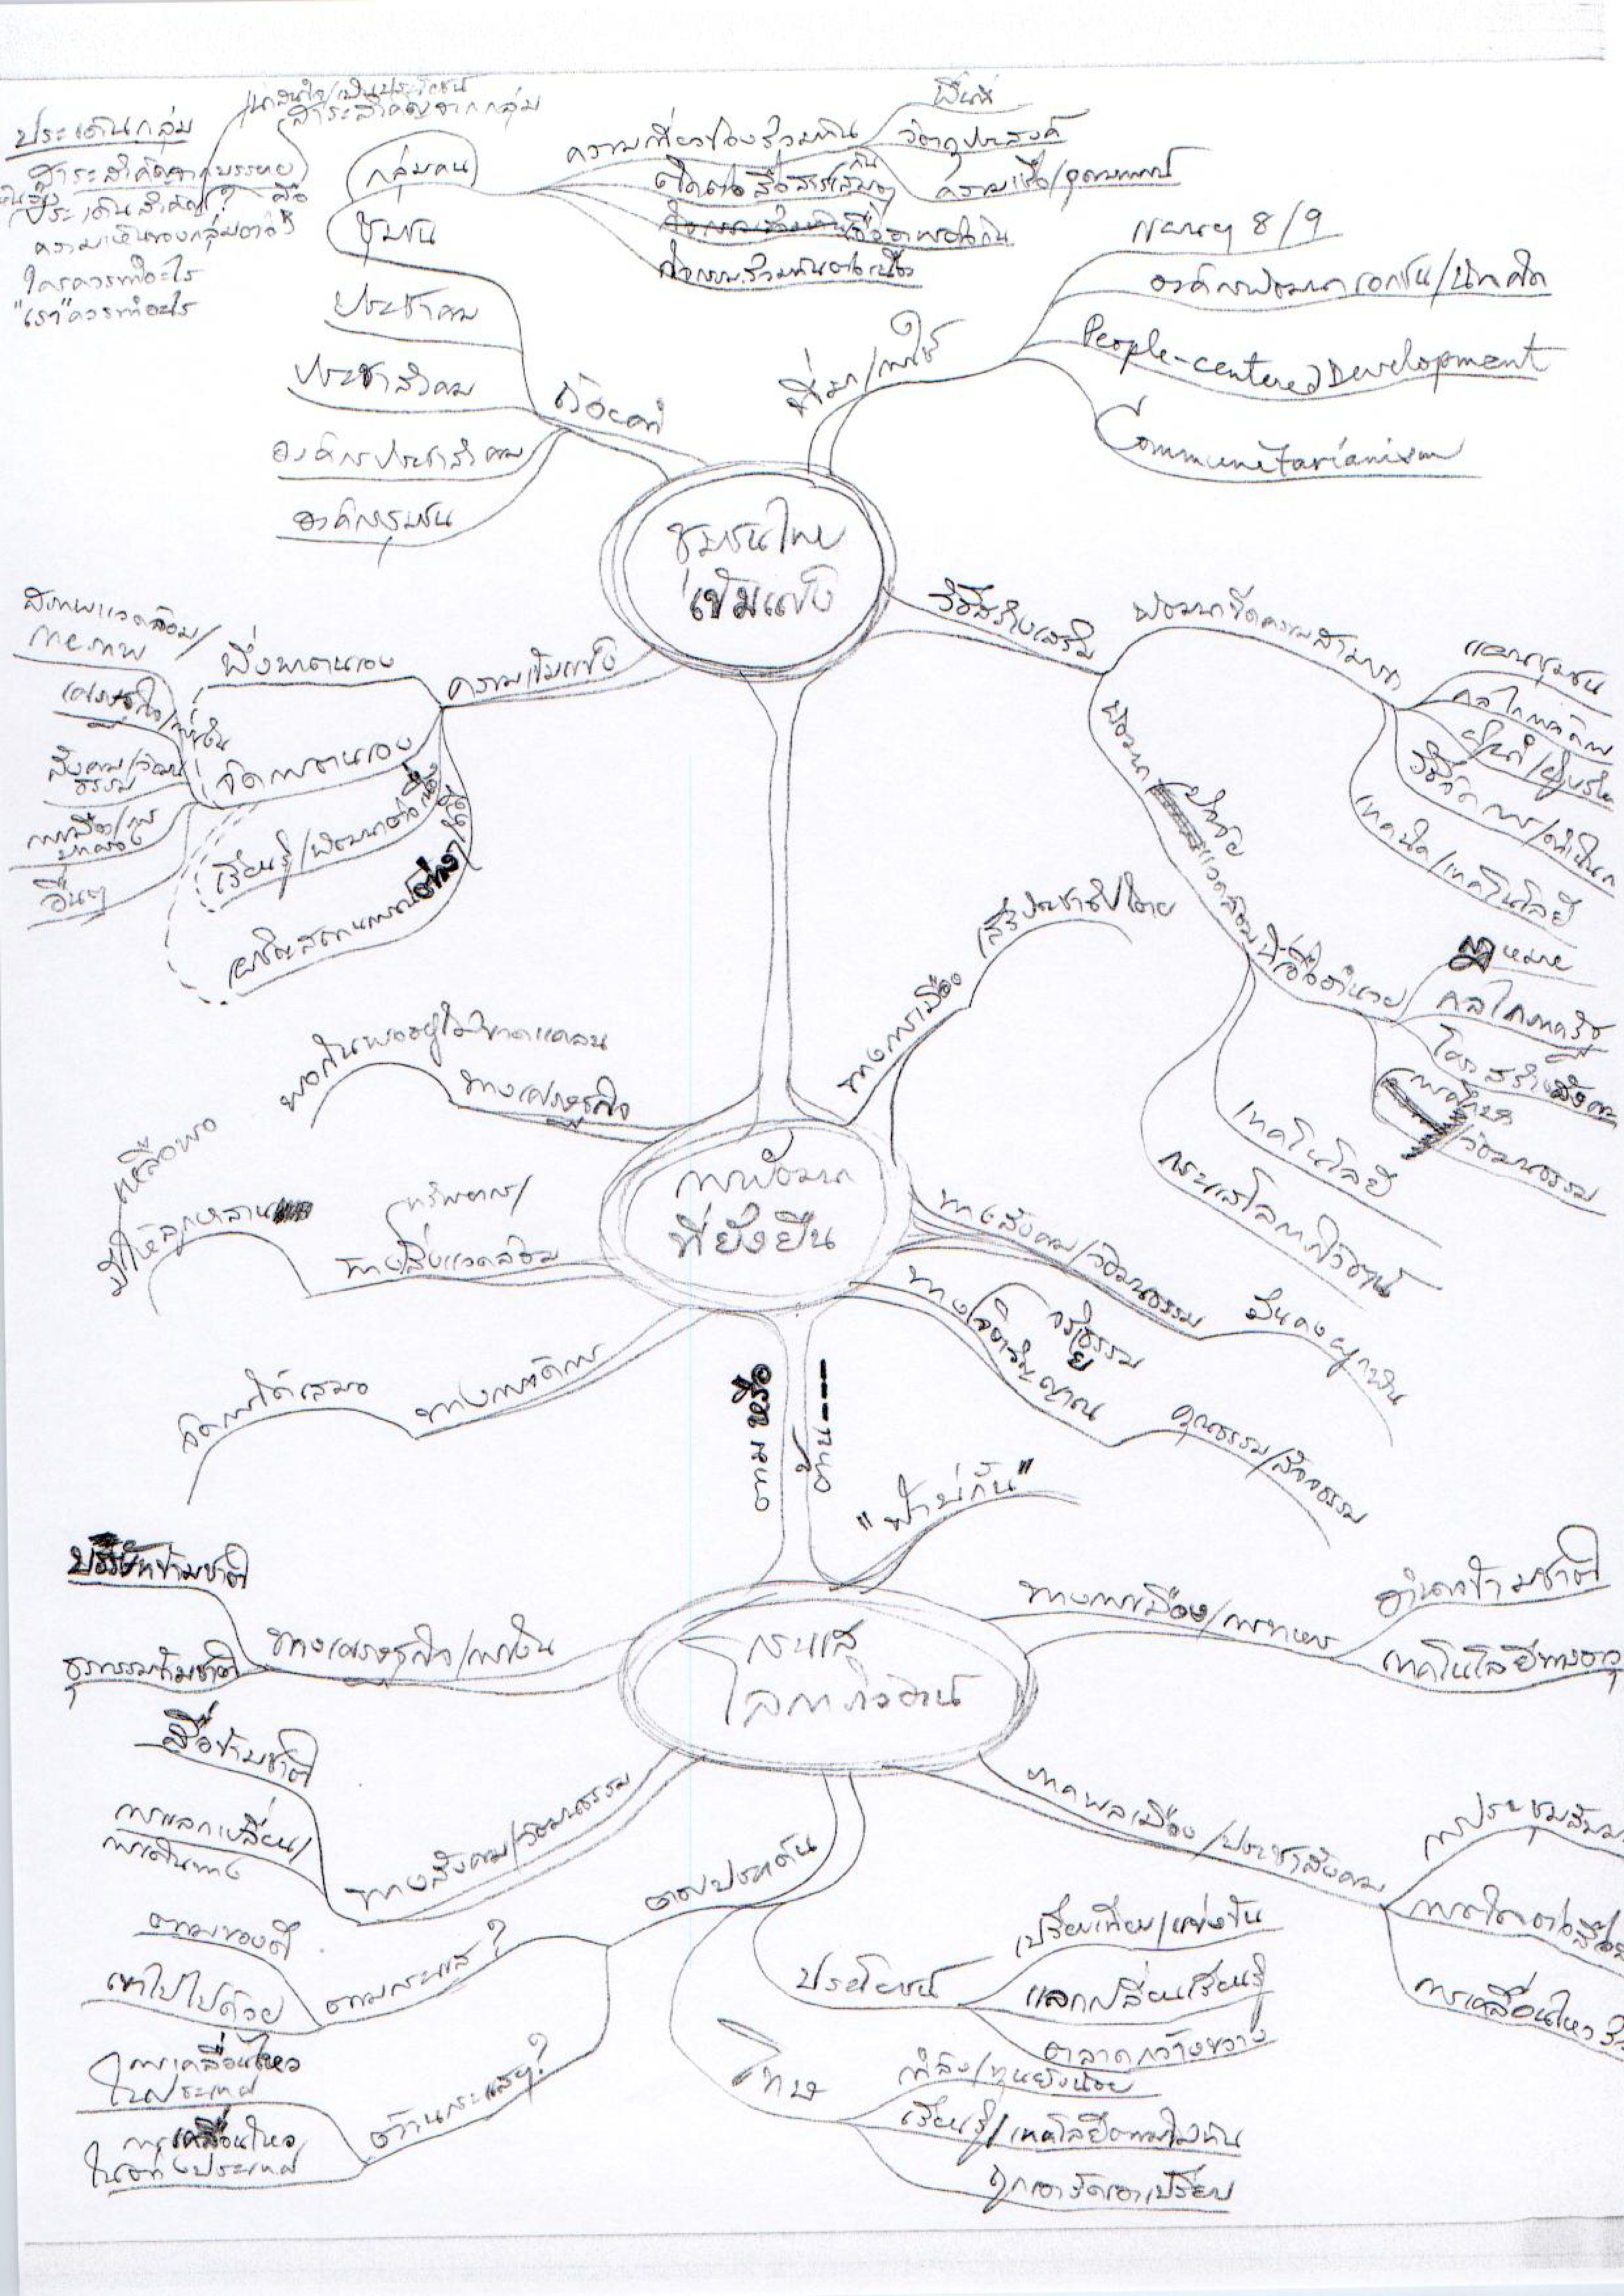 น่าสนใจ/เป็นประโยชน์
สาระสำคัญจากกลุ่ม
ประเด็นกลุ่ม
สาระสำคัญจากบรรยาย
ประเด็นสำคัญ? คือ
ความเห็นของกลุ่มต่อ
ใครควรทำอะไร
"เรา" ควรทำอะไร
กลุ่มคน
ความเกี่ยวข้องร่วมกัน
พื้นที่
วัตถุประสงค์
ความเชื่อ/อุดมการณ์
ติดต่อสื่อสารกันเสมอๆ
เอื้ออาทรต่อกัน
กิจกรรมร่วมกันต่อเนื่อง
ชุมชน
ประชาคม
ประชาสังคม
องค์กรประชาสังคม
องค์กรชุมชน
ถ้อยคำ
ที่มา/การใช้
แผนฯ 8/9
องค์กรพัฒนาเอกชน/นักคิด
People-centered Development
Communitarianism
ชุมชนไทย
เข้มแข็ง
ความเข้มแข็ง
พึ่งพาตนเอง
จัดการตนเอง
เรียนรู้/พัฒนาต่อเนื่อง
เผชิญสถานการณ์ต่างๆ ได้
สภาพแวดล้อม/
กายภาพ
เศรษฐกิจ/การเงิน
สังคม/วัฒน
ธรรม
การเมือง/การ
ปกครอง
อื่นๆ
วิธีสร้างเสริม
พัฒนาขีดความสามารถ
แผนชุมชน
กลไกการจัดการ
ผู้นำ/ผู้บริหาร
วิธีจัดการ/ดำเนินการ
เทคนิค/เทคโนโลยี
พัฒนาปัจจัย
แวดล้อมที่เอื้ออำนวย
กฎหมาย
กลไกภาครัฐ
โครงสร้างสังคม
การศึกษา
/วัฒนธรรม
เทคโนโลยี
กระแสโลกาภิวัตน์
การพัฒนา
ที่ยั่งยืน
ทางการเมือง
เสรีประชาธิปไตย
ทางเศรษฐกิจ
พอกินพออยู่ไม่ขาดแคลน
ทรัพยากร/
ทางสิ่งแวดล้อม
เหลือพอ
มีให้ลูกหลาน
ทางการจัดการ
จัดการได้เสมอ
ทางสังคม/วัฒนธรรม
มั่นคงผูกพัน
ทางจิตวิญญาณ
จริยธรรม
คุณธรรม/สัจธรรม
ตาม หรือ
ต้าน ----
"ฟ้าบ่กั้น"
กระแส
โลกาภิวัตน์
ทางเศรษฐกิจ/การเงิน
บริษัทข้ามชาติ
ธุรกรรมข้ามชาติ
ทางสังคม/วัฒนธรรม
สื่อข้ามชาติ
การแลกเปลี่ยน/
การเดินทาง
ทางการเมือง/การทหาร
อำนาจข้ามชาติ
เทคโนโลยีทางอาวุ
ภาคพลเมือง/ประชาสังคม
การประชุมสัมม
การติดต่อสื่อส
การเคลื่อนไหว
ต่างประเด็น
ตามกระแส?
ตามของดี
เขาไปไปด้วย
ต้านกระแส?
การเคลื่อนไหว
ในประเทศ
การเคลื่อนไหว
ในต่างประเทศ
ประโยชน์
เปรียบเทียบ/แข่งขัน
แลกเปลี่ยนเรียนรู้
ตลาดกว้างขวาง
โทษ
กำลัง/ทุนยังน้อย
เรียนรู้/เทคโนโลยีตามไม่ทัน
ถูกเอารัดเอาเปรียบ